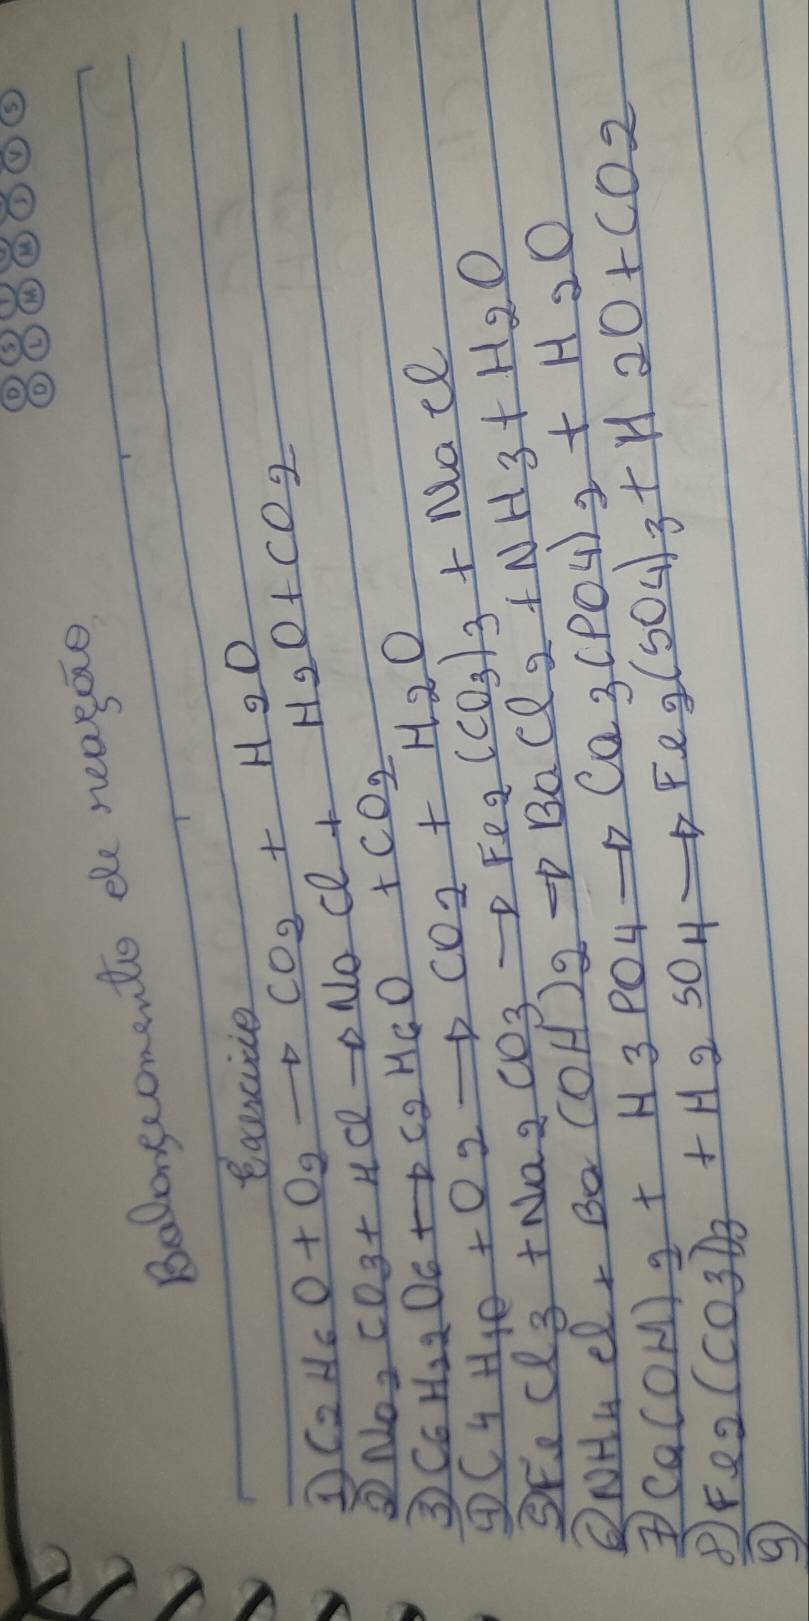 D S T Q Q S S
D L M M J V S
Balanceamento de reação
Exercício
1) C2H6O + O2 → CO2 + H2O
2) Na2CO3 + HCl → NaCl + H2O + CO2
3) C6H22O6 + → C2H6O + CO2
4) C4H10 + O2 → CO2 + H2O
5) FeCl3 + Na2CO3 → Fe2(CO3)3 + NaCl
6) NH4Cl + Ba(OH)2 → BaCl2 + NH3 + H2O
7) Ca(OH)2 + H3PO4 → Ca3(PO4)2 + H2O
8) Fe2(CO3)3 + H2SO4 → Fe2(SO4)3 + H2O + CO2
9)